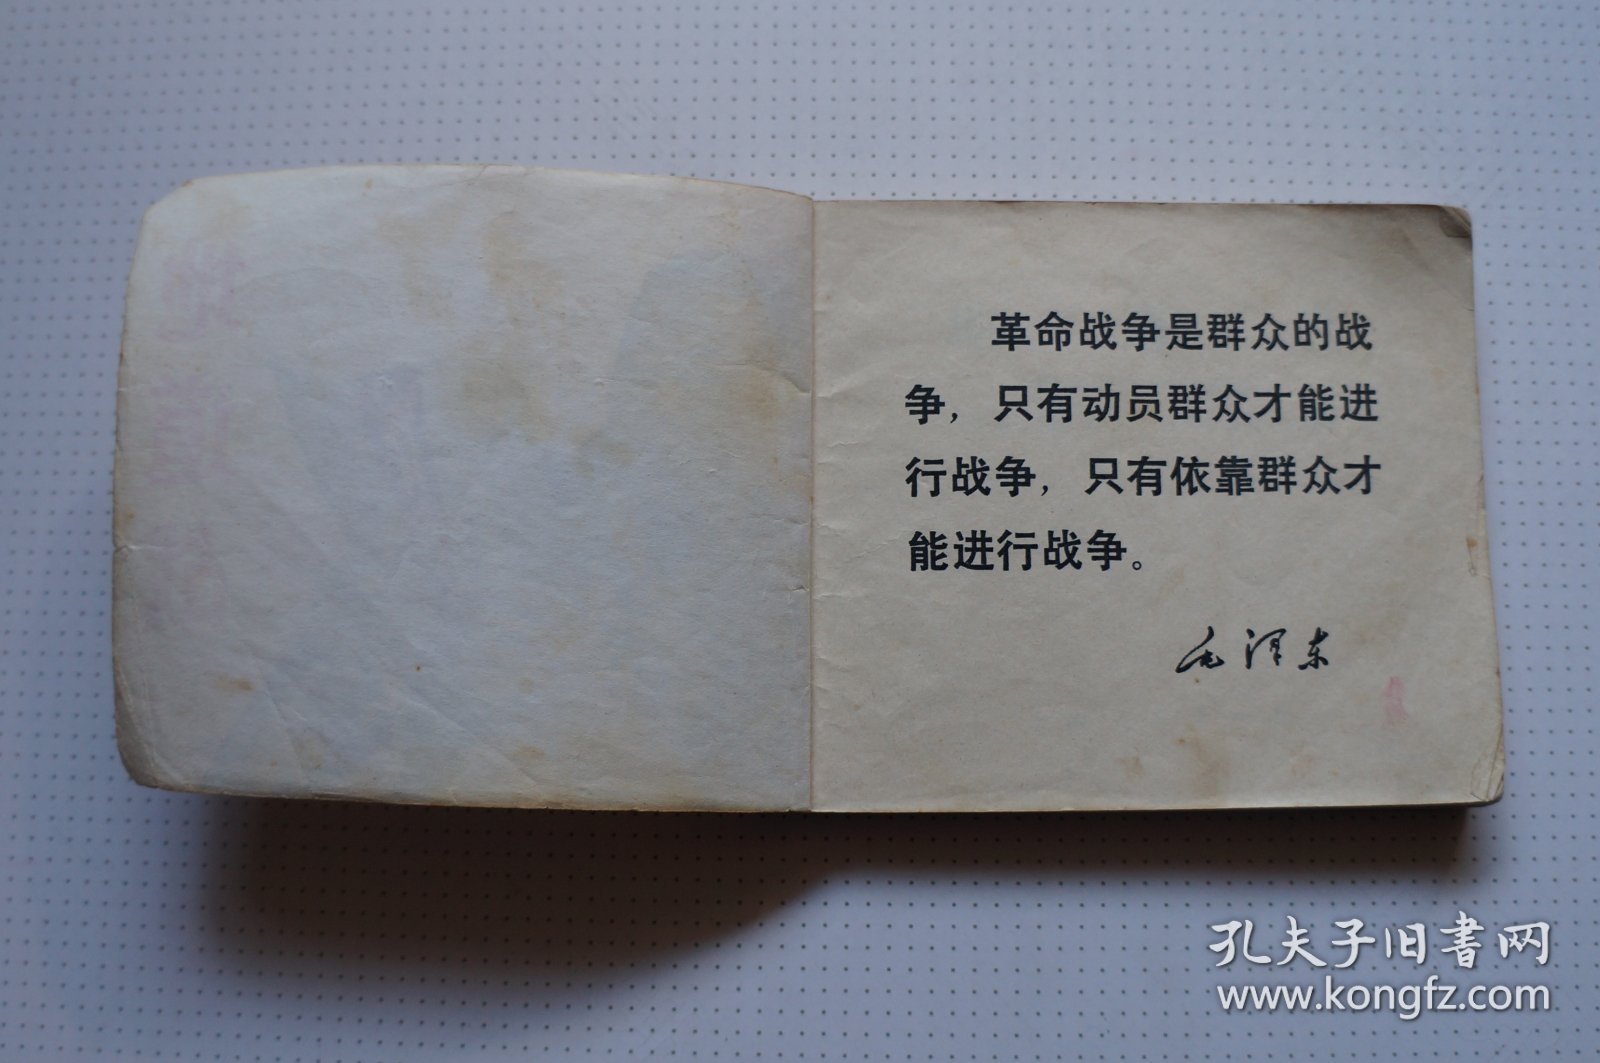 革命战争是群众的战
争，只有动员群众才能进
行战争，只有依靠群众才
能进行战争。
毛泽东
孔夫子旧书网
www.kongfz.com